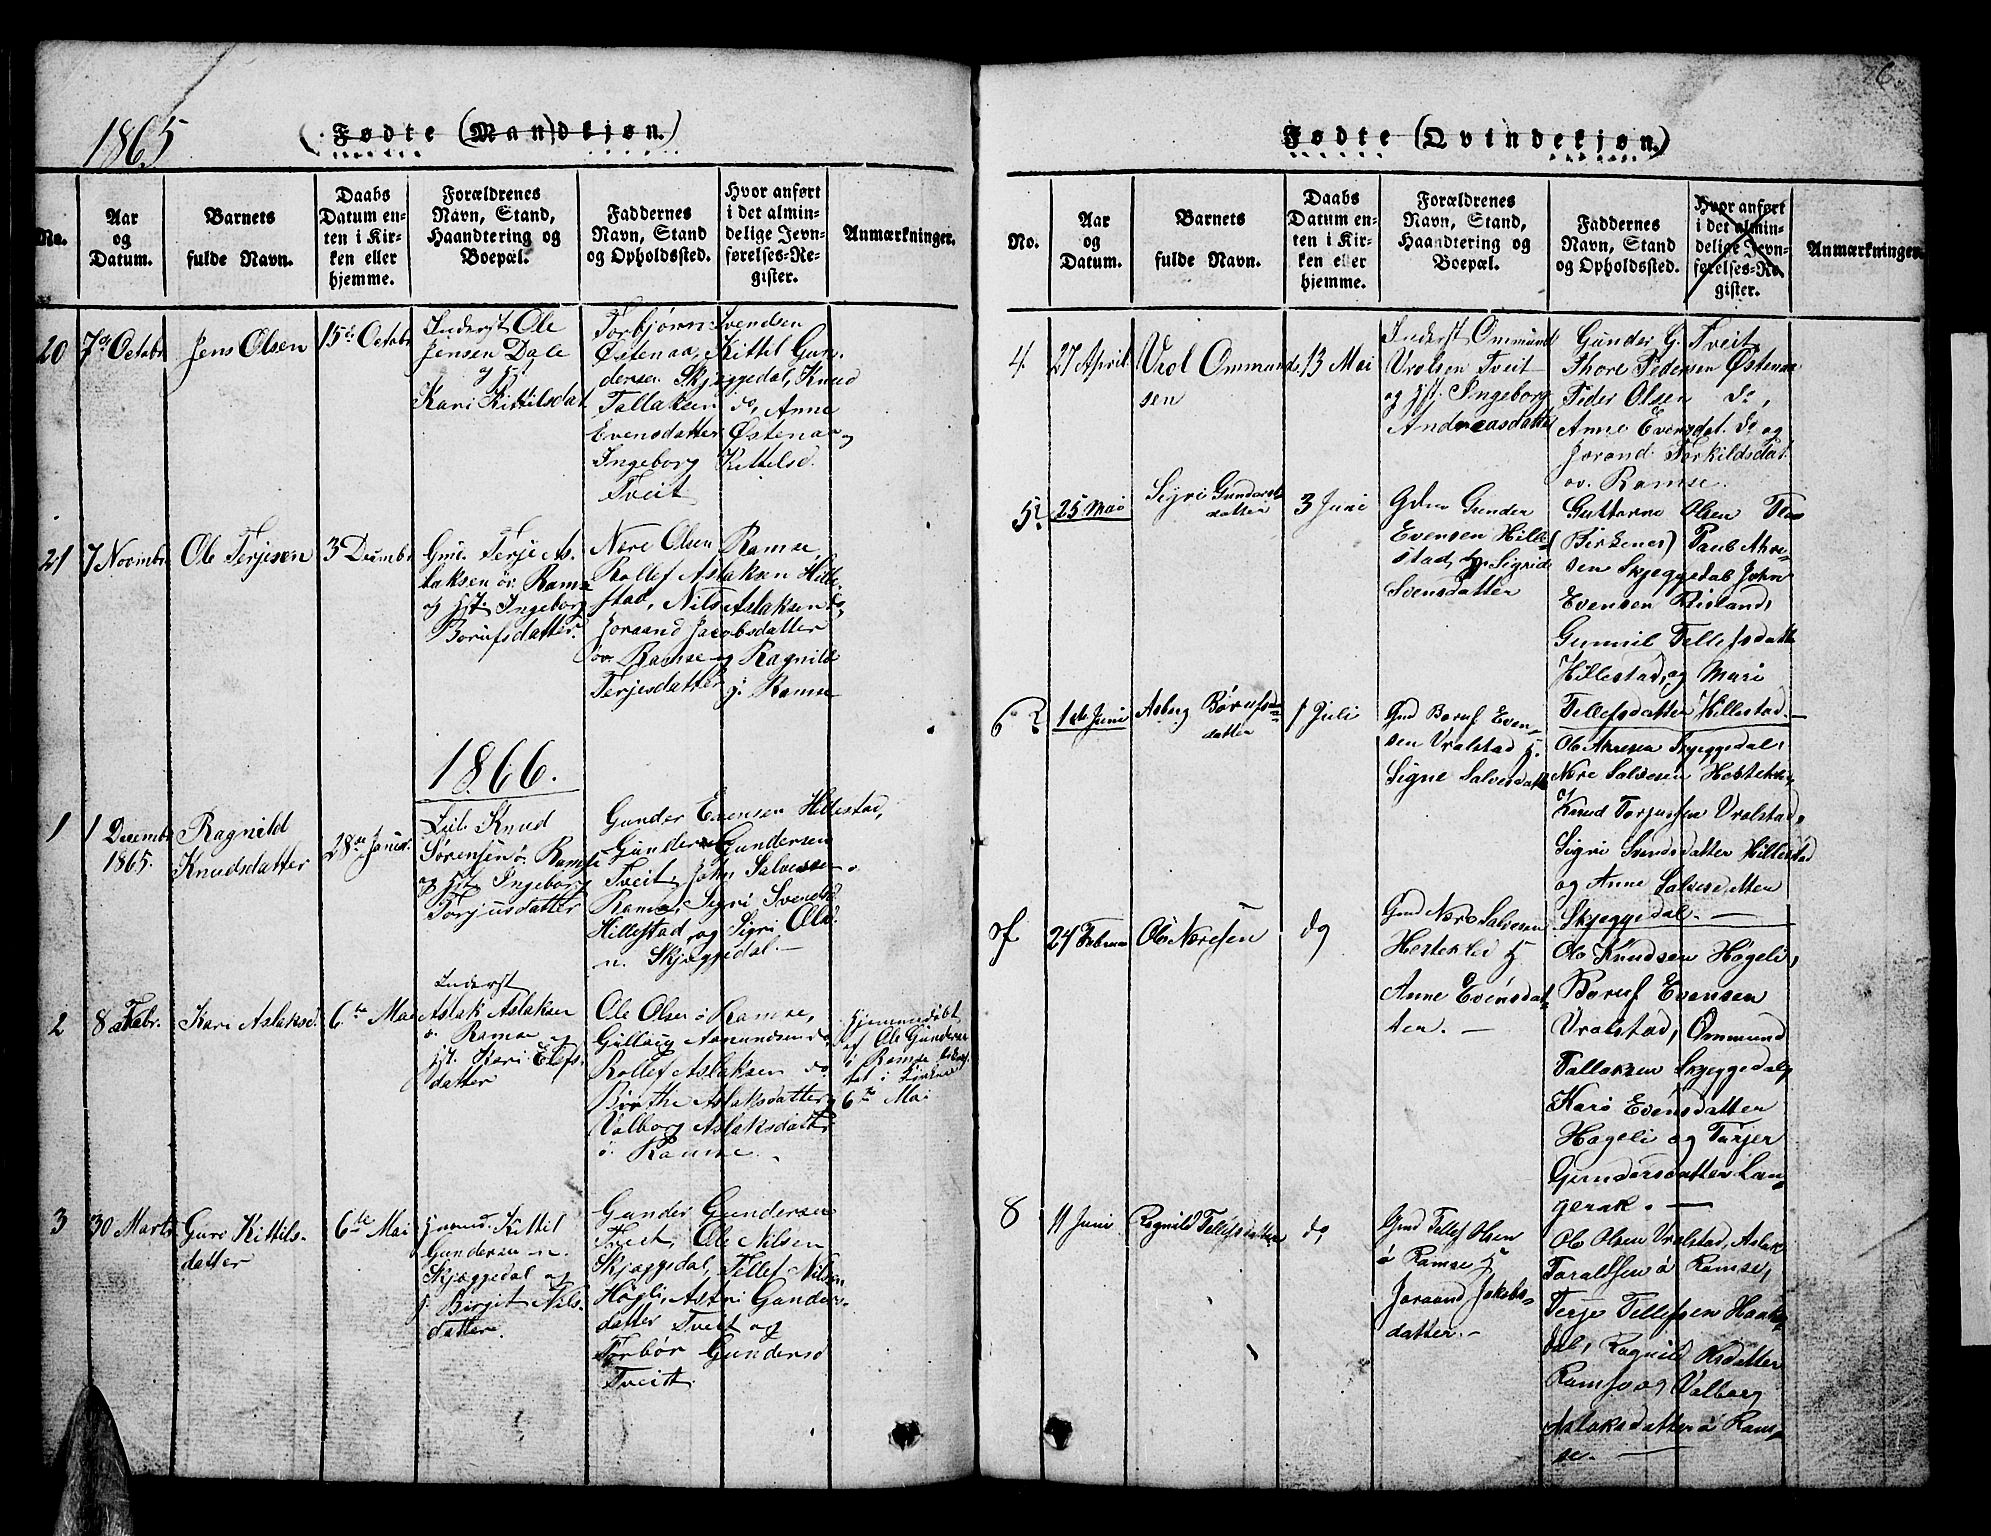 1865
(Fødte (Mandkjøn.)
No.
Aar
og
Datum.
Barnets
fulde Navn.
Daabs
Datum en-
ten i Kir-
ken eller
hjemme.
Forældrenes
Navn, Stand,
Haandtering og
Boepæl.
Faddernes
Navn, Stand
og Opholdssted.
Hvor anført
i det almin-
delige Jevn-
førelses-Re-
gister.
Anmærkninger.
20
7de Octobr
Jens Olsen
15de Octobr
Inderst Ole
Jensen Dale
og H.
Kari Kittilsdat
Torbjørn Svendsen
Østenaa, Kittil Gun-
dersen Skjeggedal, Knud
Tallaksen do, Anne
Evensdatter Østenaa og
Ingeborg Kittelsd.
Tveit
21
7 Novmbr
Ole Terjesen
3 Decmbr
Gmd. Terje As-
laksen ov. Ramse
og Hst. Ingeborg
Borufsdatter.
Nere Olsen Ramse,
Rollef Aslaksen Hille-
stad, Nils Aslaksen do,
Joraand Jacobsdatter
ov. Ramse og Ragnild
Terjesdatter Ramse
1866.
1
1 Decembr
1865.
Ragnild
Knudsdatter
28de Januar.
Knud
Sørensen ø. Ramse
og Hst. Ingeborg
Torjusdatter
Gunder Evensen Hillestad,
Gunder Gundersen
Tveit, John Salvesen
Ramse, Sigri Svensd
Hillestad og Sigri Olsd.
n. Skjeggedal.—
2
8de Febr.
Kari Aslaksd.
6te Mai
Inderst
Aslak Aslaksen
ø Ramse og
Hst. Kari Olefs-
datter
Ole Olsen ø Ramse,
Gulloug Asmundsen do
Rollef Aslaksen do.
Birthe Aslaksdatter og
Valborg Aslaksdatter
ø. Ramse.
Hjemmedøbt
af Ole Gundersen
ø Ramse
i Kirken
6te Mai
3
30 Marts
Guro Kittils-
datter
6te Mai
Kittil
Gundersen n.
Skjeggedal og
H. Birgit Nils-
datter.
Gunder Gundersen
Tveit, Ole Nilsen
Skjeggedal, Tellef Nilsen
Høgli, Astri Gunders-
datter Tveit og
Torbør Gundersd
Tveit.
76
Fødte (Qvindekjøn.)
No.
Aar
og
Datum.
Barnets
fulde Navn.
Daabs
Datum en-
ten i Kir-
ken eller
hjemme.
Forældrenes
Navn, Stand,
Haandtering og
Boepæl.
Faddernes
Navn, Stand
og Opholdssted.
Hvor anført
i det almin-
delige Jevn-
førelses-Re-
gister.
Anmærkninger.
4.
27 April
Vrol Ommunds-
sen
13 Mai
Inderst Ommund
Vrolsen Tveit
og Hst. Ingeborg
Andreasdatter
Gunder G. Tveit
Thore Pedersen Østenaa
Peder Olsen do,
Anne Evensdat. do og
Jorand Torkildsdat
ov. Ramse.
5
25 Mai
Sigri Gunders-
datter
3 Juni
Gdm Gunder
Evensen Hille-
stad, H. Sigrid
Svensdatter
Guttorm Olsen
(Birkenes)
Skjeggedal John
Evensen Risland,
Gunnil Tellefsdatt
Hillestad, og Mari
Tellefsdatter Hillestad.—
6
1de Juni
Asberg Børufs-
datter
1 Juli
Gmd Boruf Even-
sen Vralstad H.
Signe Salvesdatt
Ole Skjeggedal,
Nere Salvesen Hestekle
Knud Torjussen Vralstad,
Sigri Svensdatter Hillestad
og Anne Salvesdatter
Skjeggedal.—
24 Februar
Ole Neresen
do
Gmd Nere Salvesen
Hesteklei H
Anne Evensdat-
ter.—
Ole Knudsen Høgeli,
Boruf Evensen
Vralstad, Ommund
Tallaksen Skjeggedal,
Kari Evensdatter
Høgeli og Torjer
Gundersdatter Lan-
gerak.—
8
11 Juni
Ragnild Tellefsdatter
do
Gmd Tellef Olsen
ø Ramse H
Joraand Jakobs-
datter.—
Ole Olsen Vralstad, Aslak
Taraldsen ø Ramse,
Terje Tellefsen Haak-
dal, Ragnild datter
Ramse og Valborg
Aslaksdatter ø Ram-
se.—